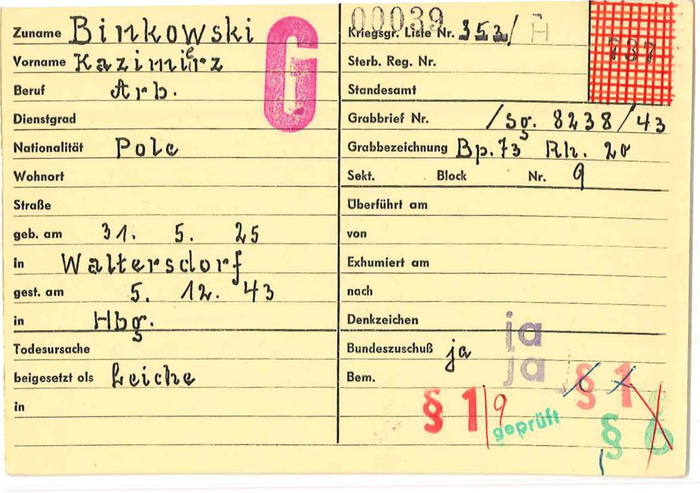 Zuname Binkowski
Vorname Kazimierz
Beruf Arb.
Dienstgrad
Nationalität Pole
Wohnort
Straße
geb. am 31. 5. 25
in Waltersdorf
gest. am 5. 12. 43
in Hbg.
Todesursache
beigesetzt als Leiche
in
G
00039
Kriegsgr. Liste Nr. 353/ A
737
Sterb. Reg. Nr.
Standesamt
Grabbrief Nr. /Sg. 8238/43
Grabbezeichnung Bp. 73 Rh. 20
Sekt. Block Nr. 9
Überführt am
von
Exhumiert am
nach
Denkzeichen ja
Bundeszuschuß ja ja
Bem.
§ 1
§ 1 9
geprüft
§ 6